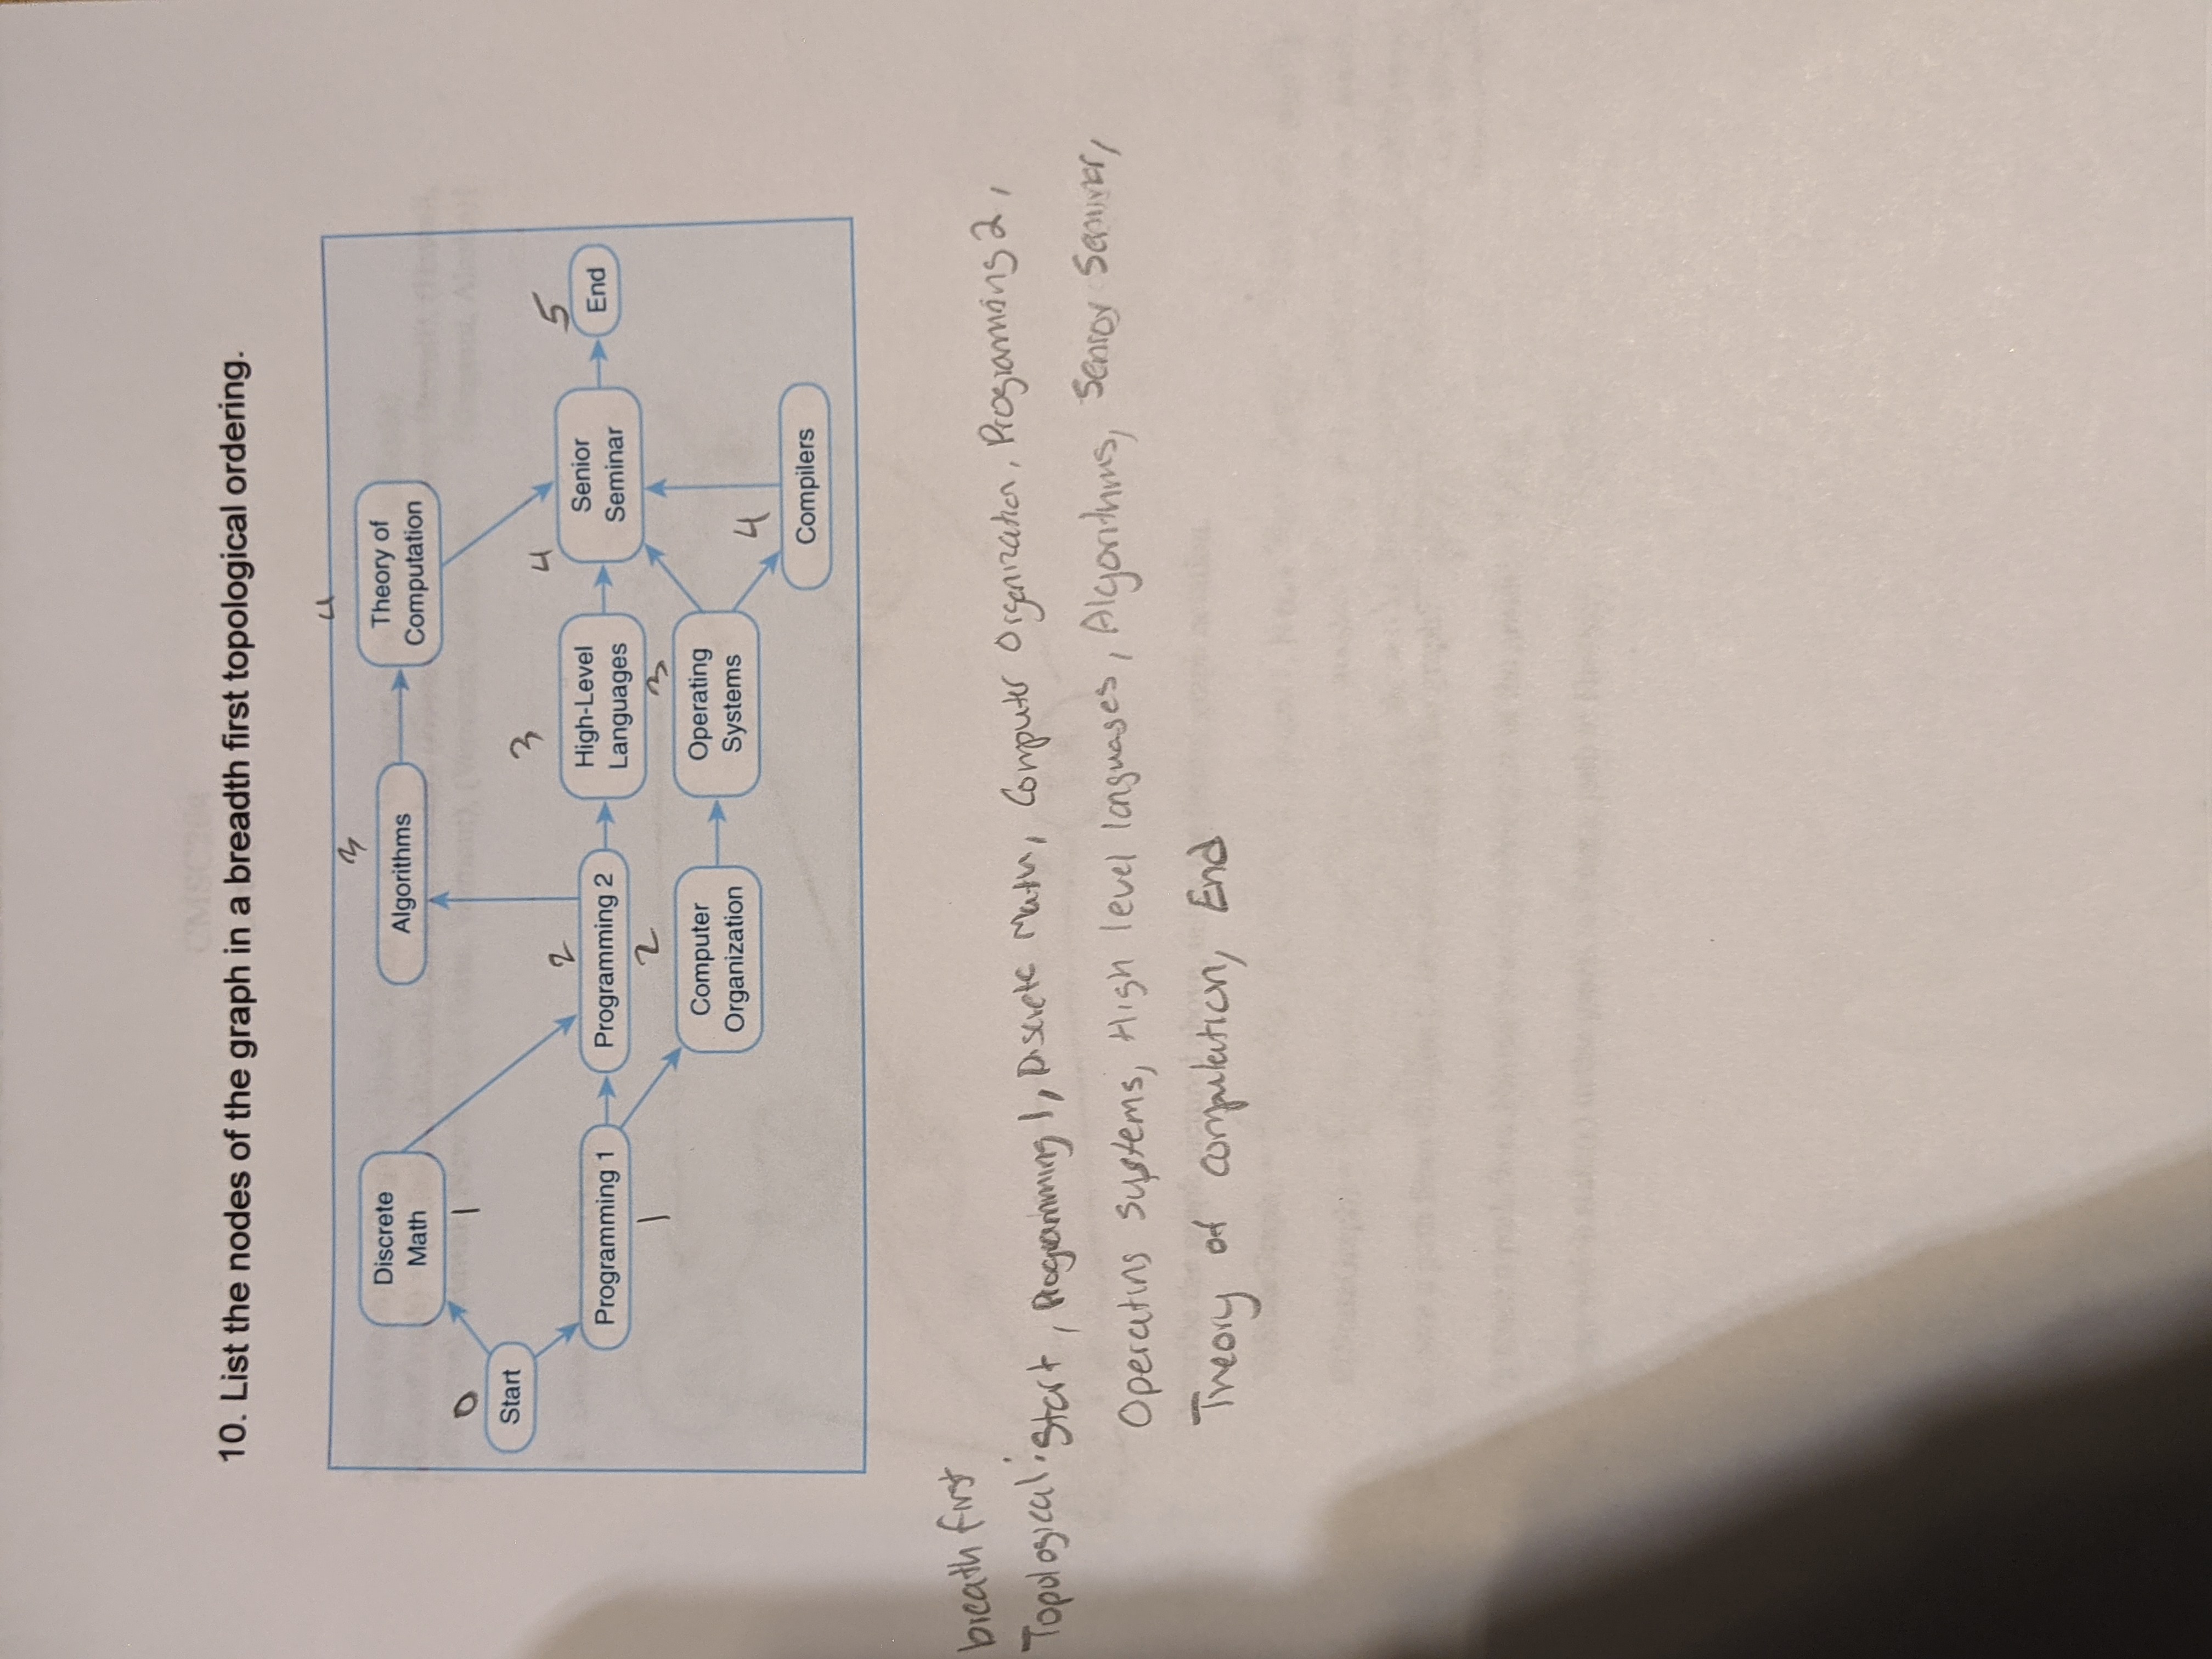 CMSC204
10. List the nodes of the graph in a breadth first topological ordering.
4
3
Discrete
Math
Algorithms
Theory of
Computation
0
1
Start
3
4
5
2
Programming 1
Programming 2
High-Level
Languages
Senior
Seminar
End
1
2
3
Computer
Organization
Operating
Systems
4
Compilers
breath first
Topological: Start, Programming 1, Discrete Math, Computer Organization, Programming 2,
Operating Systems, High level languages, Algorithms, Senior Seminar,
Theory of computation, End